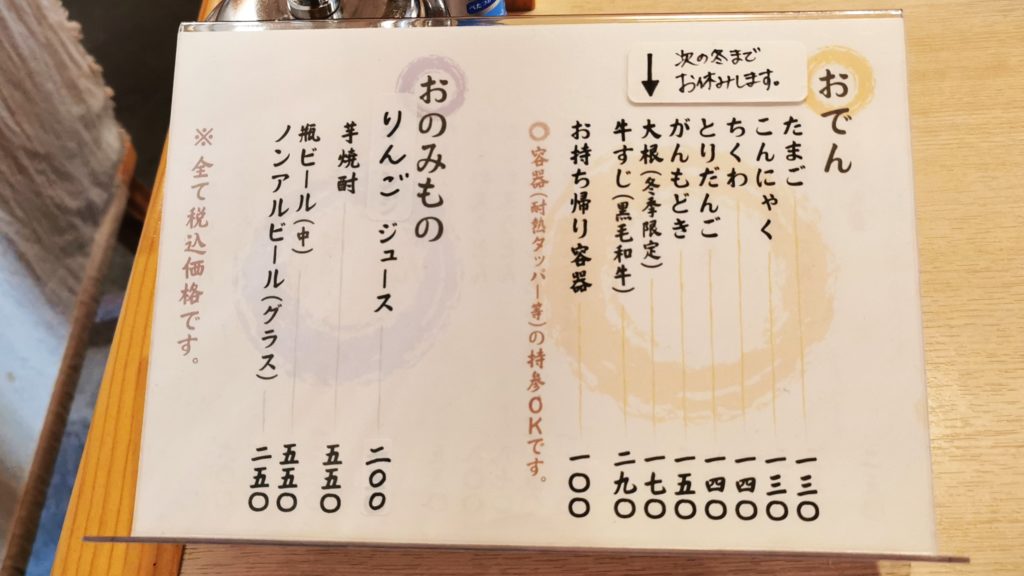 おでん
次の冬まで
お休みします。
たまご 一三〇
こんにゃく 一三〇
ちくわ 一四〇
とりだんご 一四〇
がんもどき 一五〇
大根(冬季限定) 一七〇
牛すじ(黒毛和牛) 二九〇
お持ち帰り容器 一〇〇
○容器(耐熱タッパー等)の持参OKです。
おのみもの
りんごジュース 二〇〇
芋焼酎 五五〇
瓶ビール(中) 五五〇
ノンアルビール(グラス) 二五〇
※全て税込価格です。